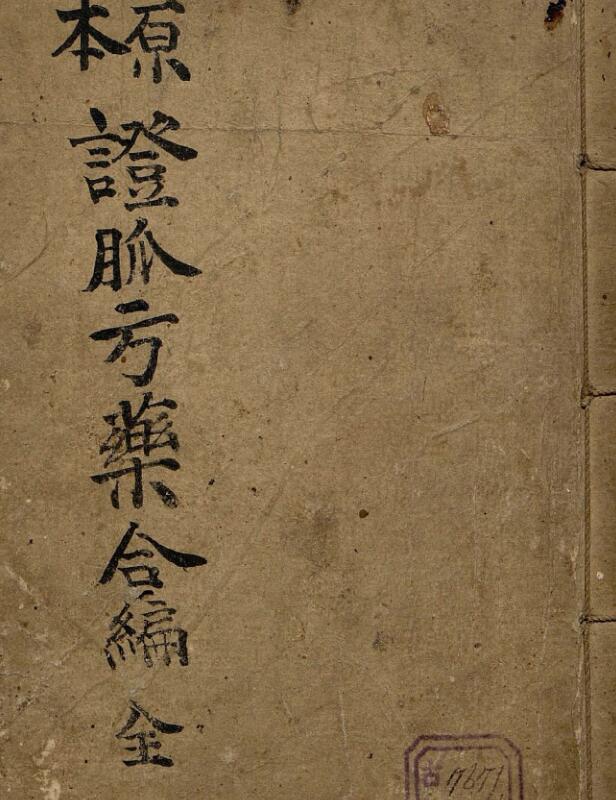 原本
證脈方藥合編 全
古 7671